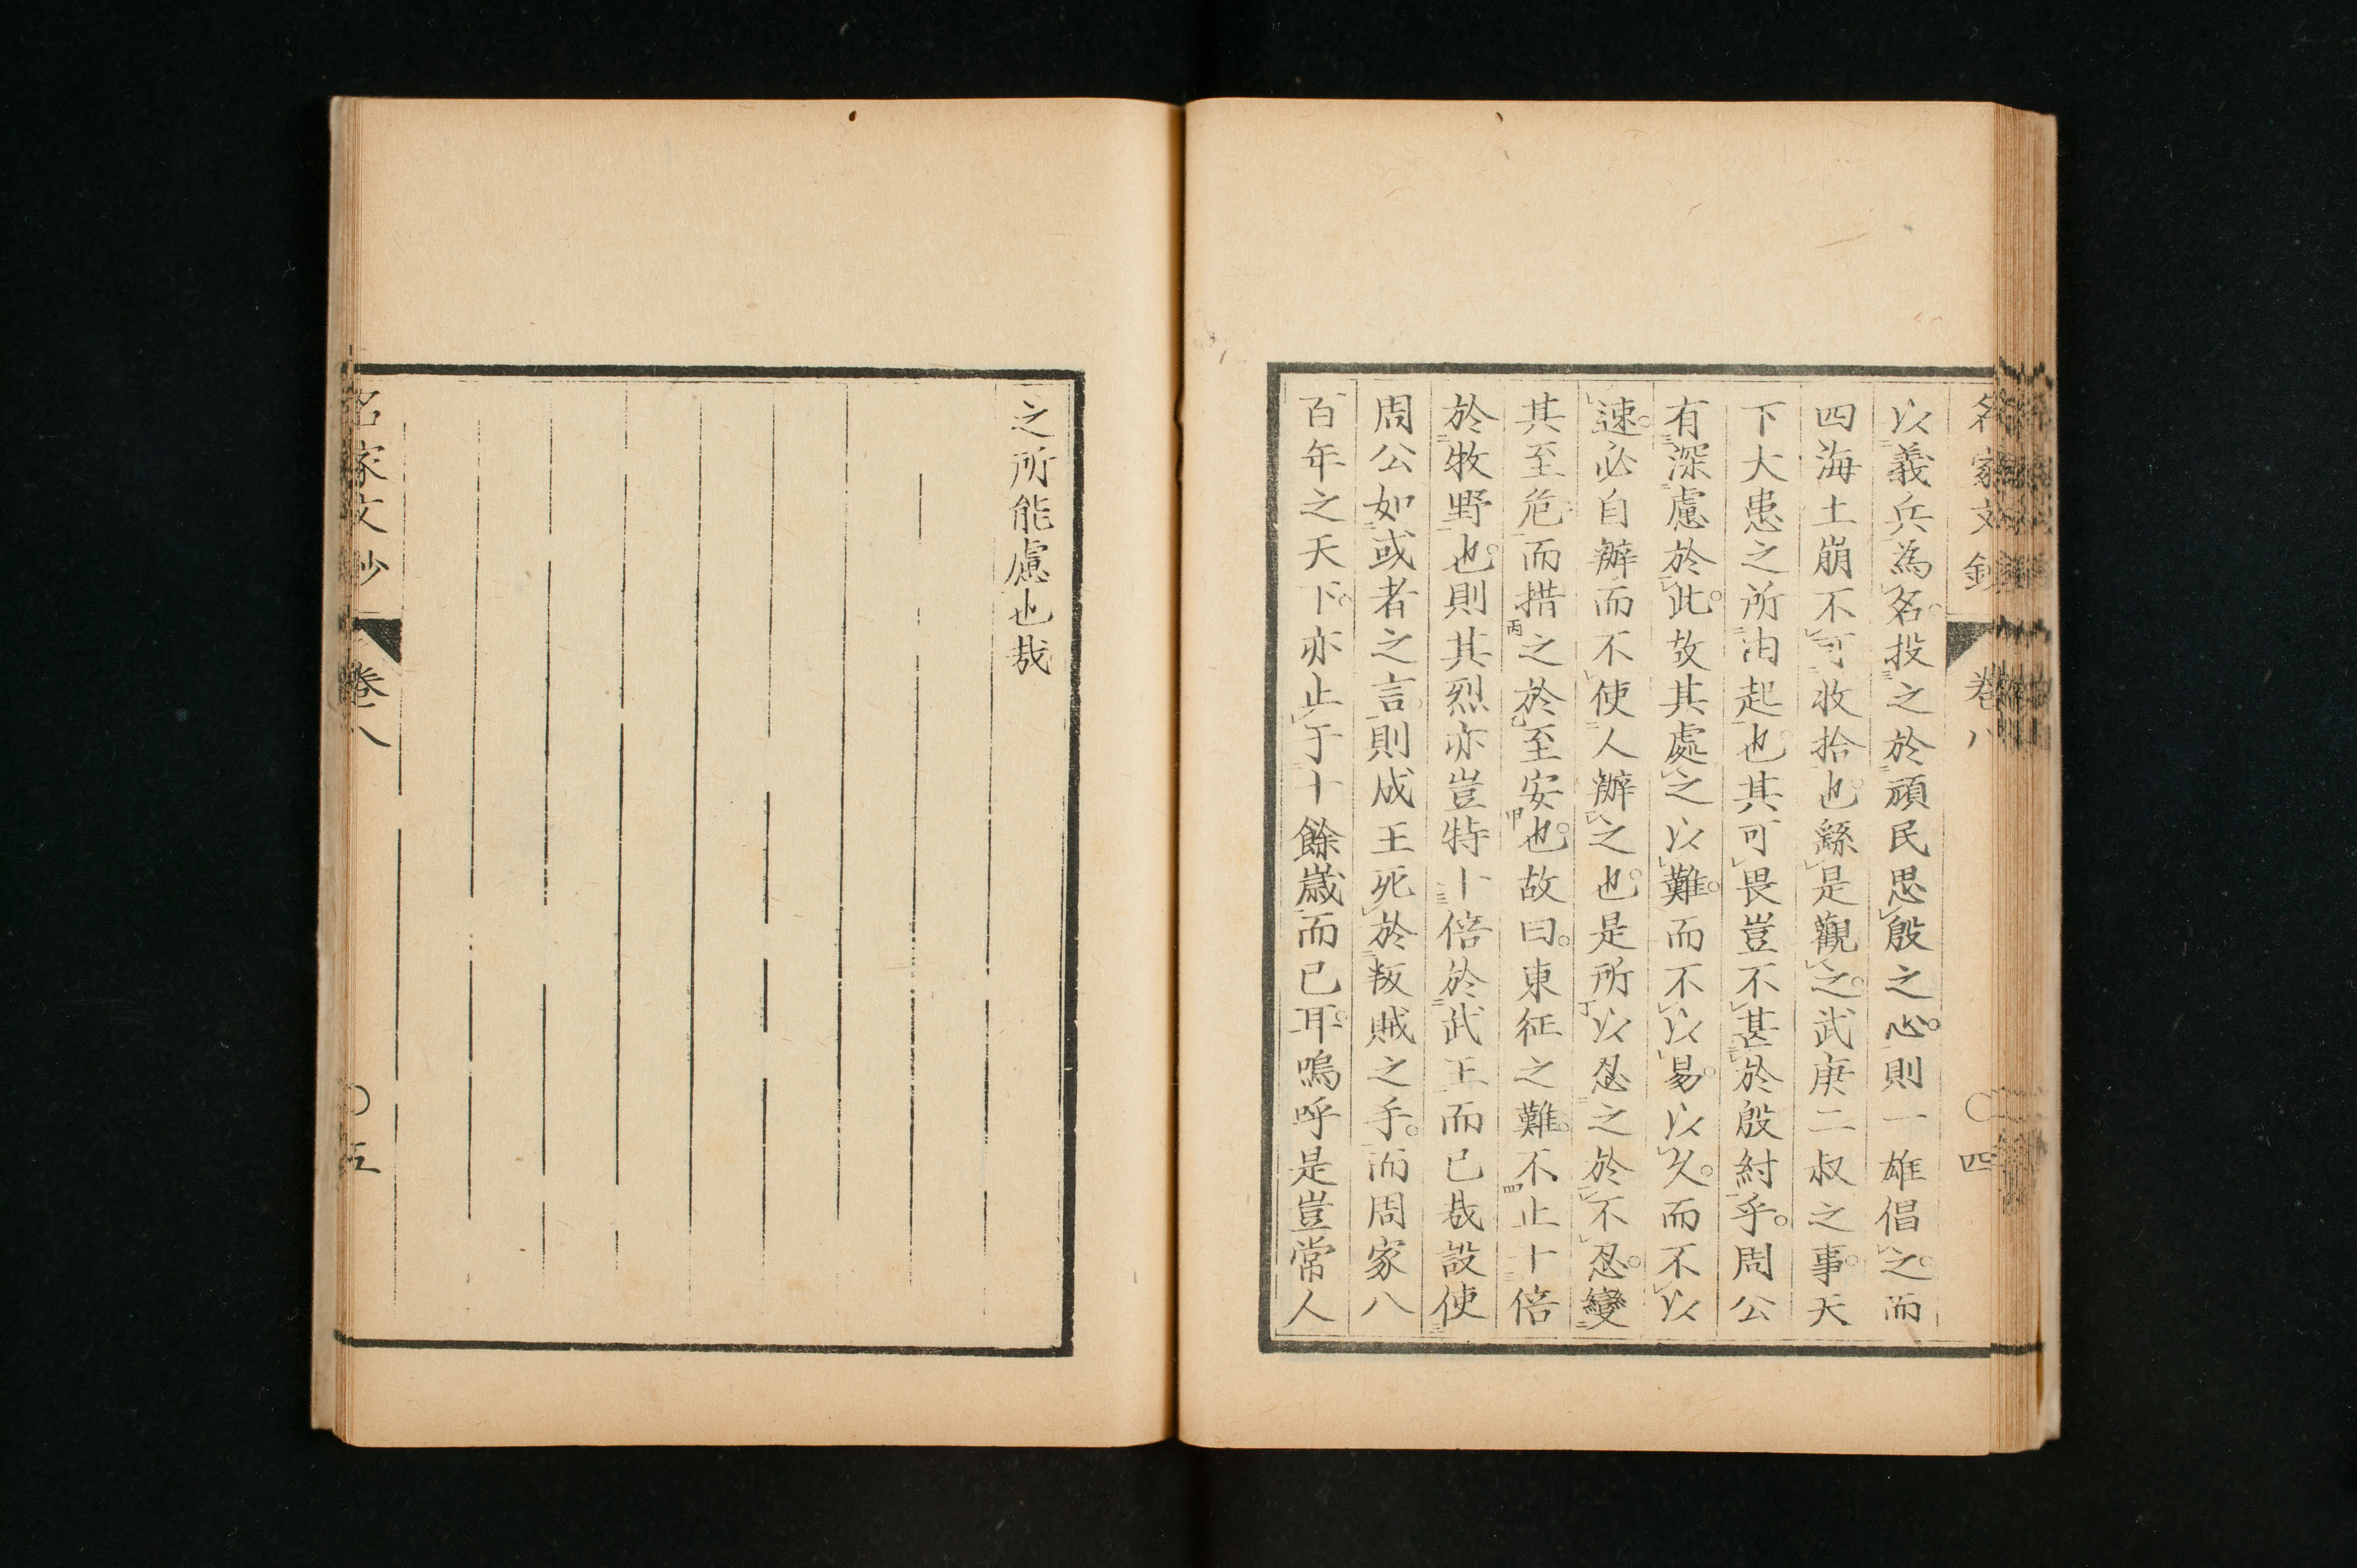 名家文鈔 卷八 〇四
以義兵為名投之於頑民思殷之心則一雄倡之而
四海土崩不可收拾也繇是觀之武庚二叔之事天
下大患之所由起也其可畏豈不甚於殷紂乎周公
有深慮於此故其處之以難而不以易以久而不以
速必自辦而不使人辦之也是所以忍之於不忍變
其至危而措之於至安也故曰東征之難不止十倍
於牧野也則其烈亦豈特十倍於武王而已哉設使
周公如或者之言則成王死於叛賊之手而周家八
百年之天下亦止于十餘歲而已耳嗚呼是豈常人
之所能慮也哉
名家文鈔 卷八 〇五